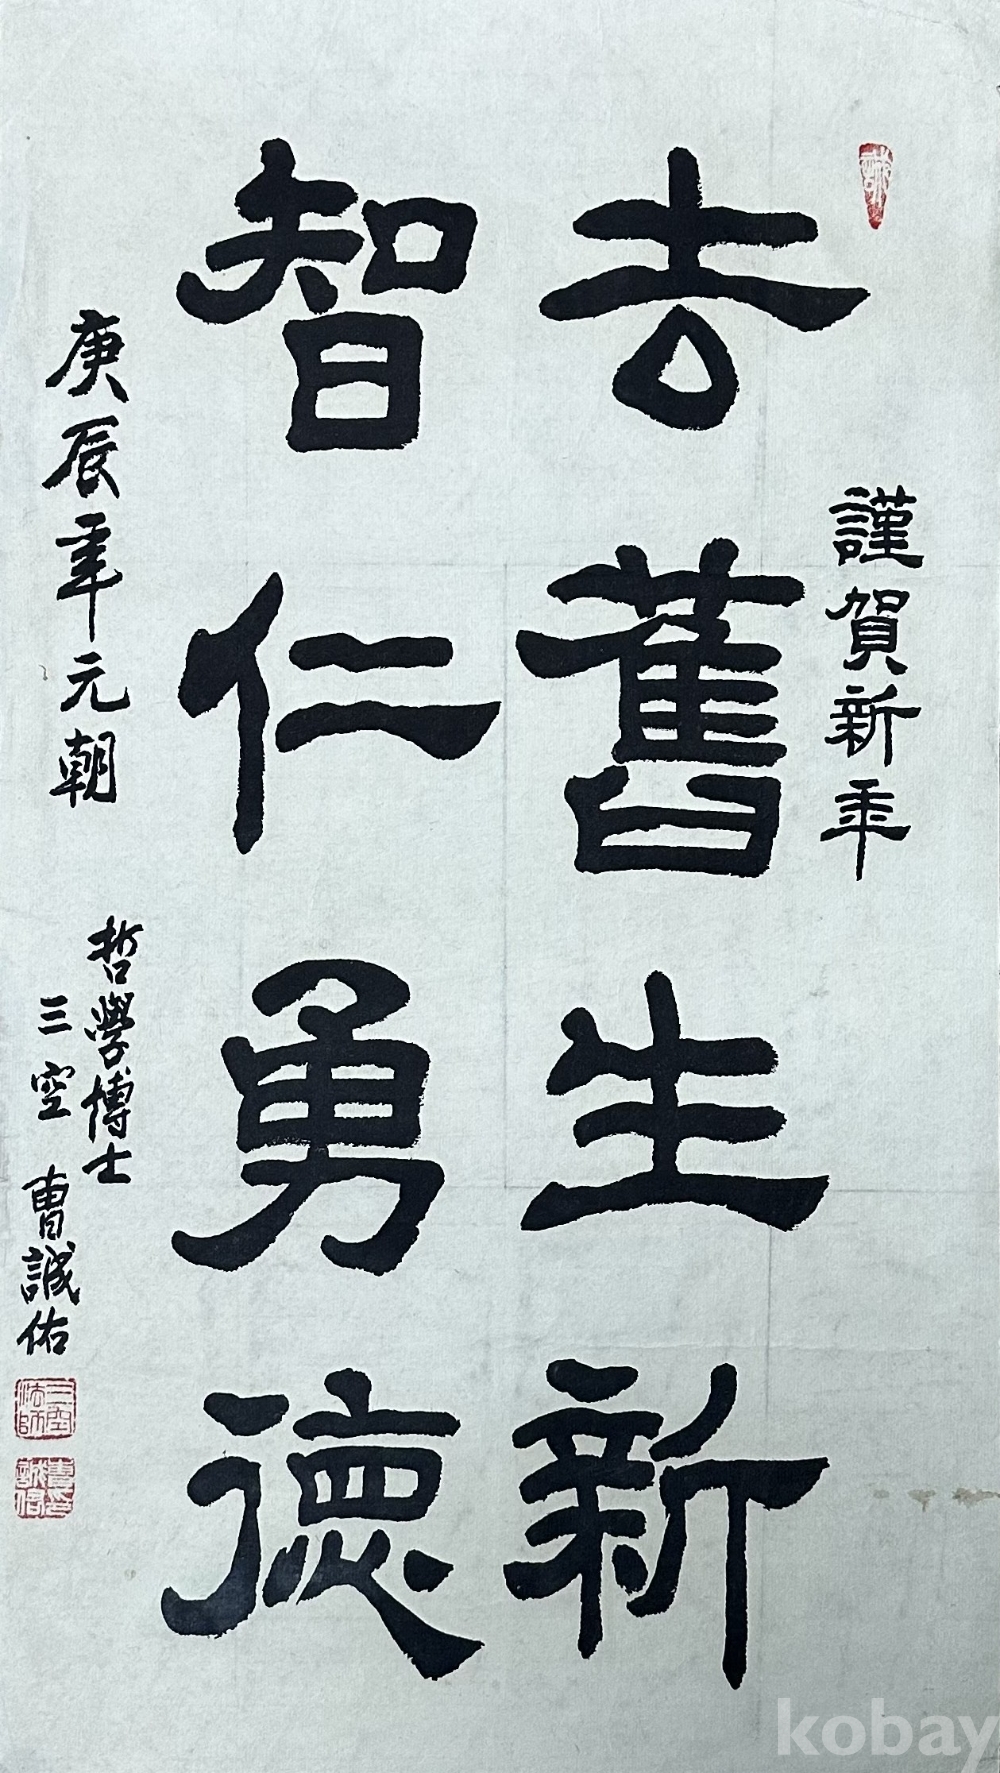 謹賀新年
去舊生新
智仁勇德
庚辰年元朝
哲學博士
三空 曺誠佑
三空法師
kobay